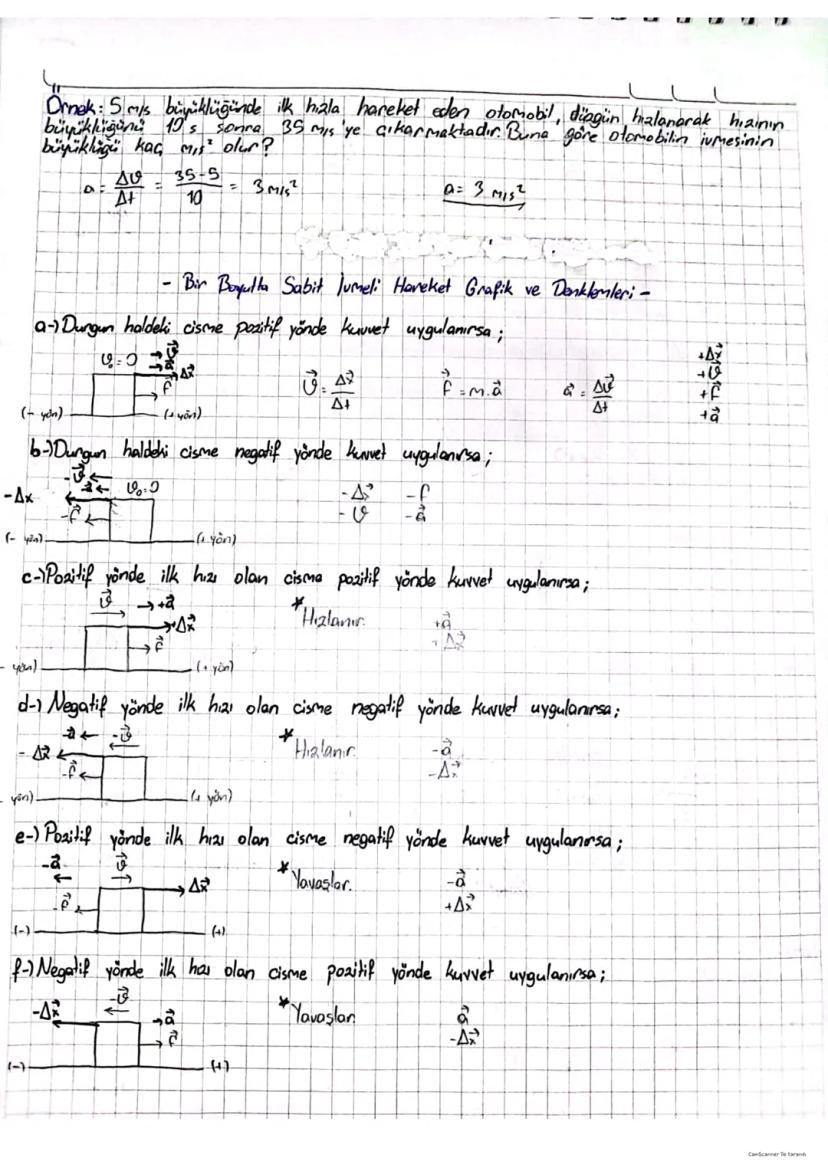 Örnek: 5 m/s büyüklüğünde ilk hızla hareket eden otomobil, düzgün hızlanarak hızının
büyüklüğünü 10 s sonra 35 m/s'ye çıkarmaktadır. Buna göre otomobilin ivmesinin
büyüklüğü kaç m/s² olur?
a = Δϑ/Δt = 35-5/10 = 3 m/s² a = 3 m/s²
- Bir Boyutta Sabit İvmeli Hareket Grafik ve Denklemleri -
a-) Durgun haldeki cisme pozitif yönde kuvvet uygulanırsa;
ϑ₀=0 ϑ⃗ a⃗ Δx⃗ F⃗
(- yön) (+ yön)
ϑ⃗ = Δx⃗/Δt F⃗ = m.a⃗ a⃗ = Δϑ⃗/Δt
+Δx⃗
+ϑ⃗
+F⃗
+a⃗
b-) Durgun haldeki cisme negatif yönde kuvvet uygulanırsa;
-ϑ⃗
-a⃗ ϑ₀=0
-Δx
-F⃗
(- yön) (+ yön)
-Δx⃗ -F
-ϑ -a⃗
c-) Pozitif yönde ilk hızı olan cisme pozitif yönde kuvvet uygulanırsa;
ϑ⃗ +a⃗
Δx⃗
F⃗
yön) (+ yön)
* Hızlanır.
+a⃗
+Δx⃗
d-) Negatif yönde ilk hızı olan cisme negatif yönde kuvvet uygulanırsa;
-a⃗ -ϑ⃗
-Δx⃗
-F⃗
yön) (+ yön)
* Hızlanır.
-a⃗
-Δx⃗
e-) Pozitif yönde ilk hızı olan cisme negatif yönde kuvvet uygulanırsa;
-a⃗ ϑ⃗
Δx⃗
-F⃗
(-) (+)
* Yavaşlar.
-a⃗
+Δx⃗
f-) Negatif yönde ilk hızı olan cisme pozitif yönde kuvvet uygulanırsa;
-ϑ⃗
-Δx⃗ a⃗
F⃗
(-) (+)
* Yavaşlar
a⃗
-Δx⃗
CamScanner ile tarandı